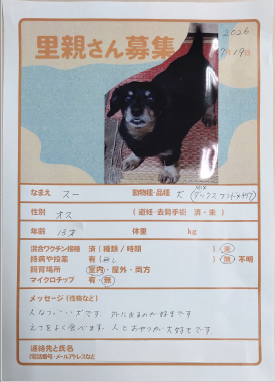 里親さん募集
2026
7月19日
なまえ スー 動物種・品種 犬 (MIX ダックスフント
性別 オス (避妊・去勢手術 済・未)
年齢 13才 体重 kg
混合ワクチン接種 済(種類/時期 )・未
持病や投薬 有(なし )・無・不明
飼育場所 室内・屋外・両方
マイクロチップ 有・無
メッセージ(性格など)
人なつこい犬です 外に出るのが好きです
えさをよく食べます。人とおやつが大好きです
連絡先と氏名
(電話番号・メールアドレスなど)